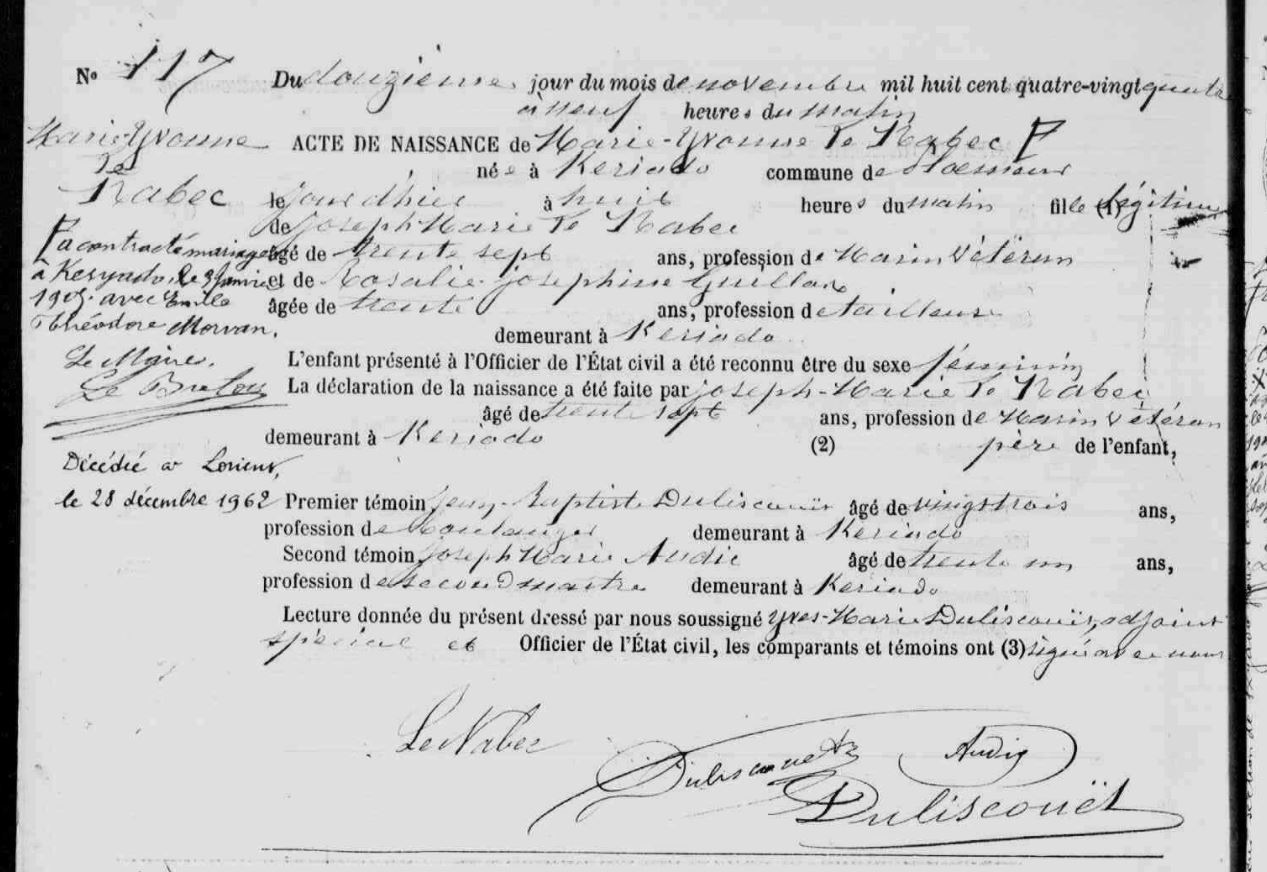 N° 117
Du douzième jour du mois de novembre mil huit cent quatre-vingt quatre
à neuf heures du matin
Marie-Yvonne
Le
Nabec
ACTE DE NAISSANCE de Marie-Yvonne Le Nabec
née à Keriado commune de Ploemeur
le jour d'hier à huit heures du matin fille (1) légitime
de Joseph Marie Le Nabec
âgé de trente sept ans, profession de Marin vétéran
et de Rosalie Josephine
âgée de trente ans, profession de tailleuse
demeurant à Keriado
a contracté mariage
à Keryado le 9 janvier
1905 avec Emile
Théodore Morvan.
Le Maire.
Le Bretou
L'enfant présenté à l'Officier de l'État civil a été reconnu être du sexe féminin
La déclaration de la naissance a été faite par Joseph-Marie Le Nabec
âgé de trente sept ans, profession de Marin vétéran
demeurant à Keriado (2) père de l'enfant,
Décédée à Lorient,
le 28 décembre 1962
Premier témoin Jean-Baptiste Duliscouët âgé de vingt trois ans,
profession de Boulanger demeurant à Keriado
Second témoin Joseph Marie Audic âgé de trente un ans,
profession de second maitre demeurant à Keriado
Lecture donnée du présent dressé par nous soussigné Yves-Marie Duliscouët, adjoint
spécial et Officier de l'État civil, les comparants et témoins ont (3) signé avec nous
Le Nabec
Duliscouët
Audic
Duliscouët